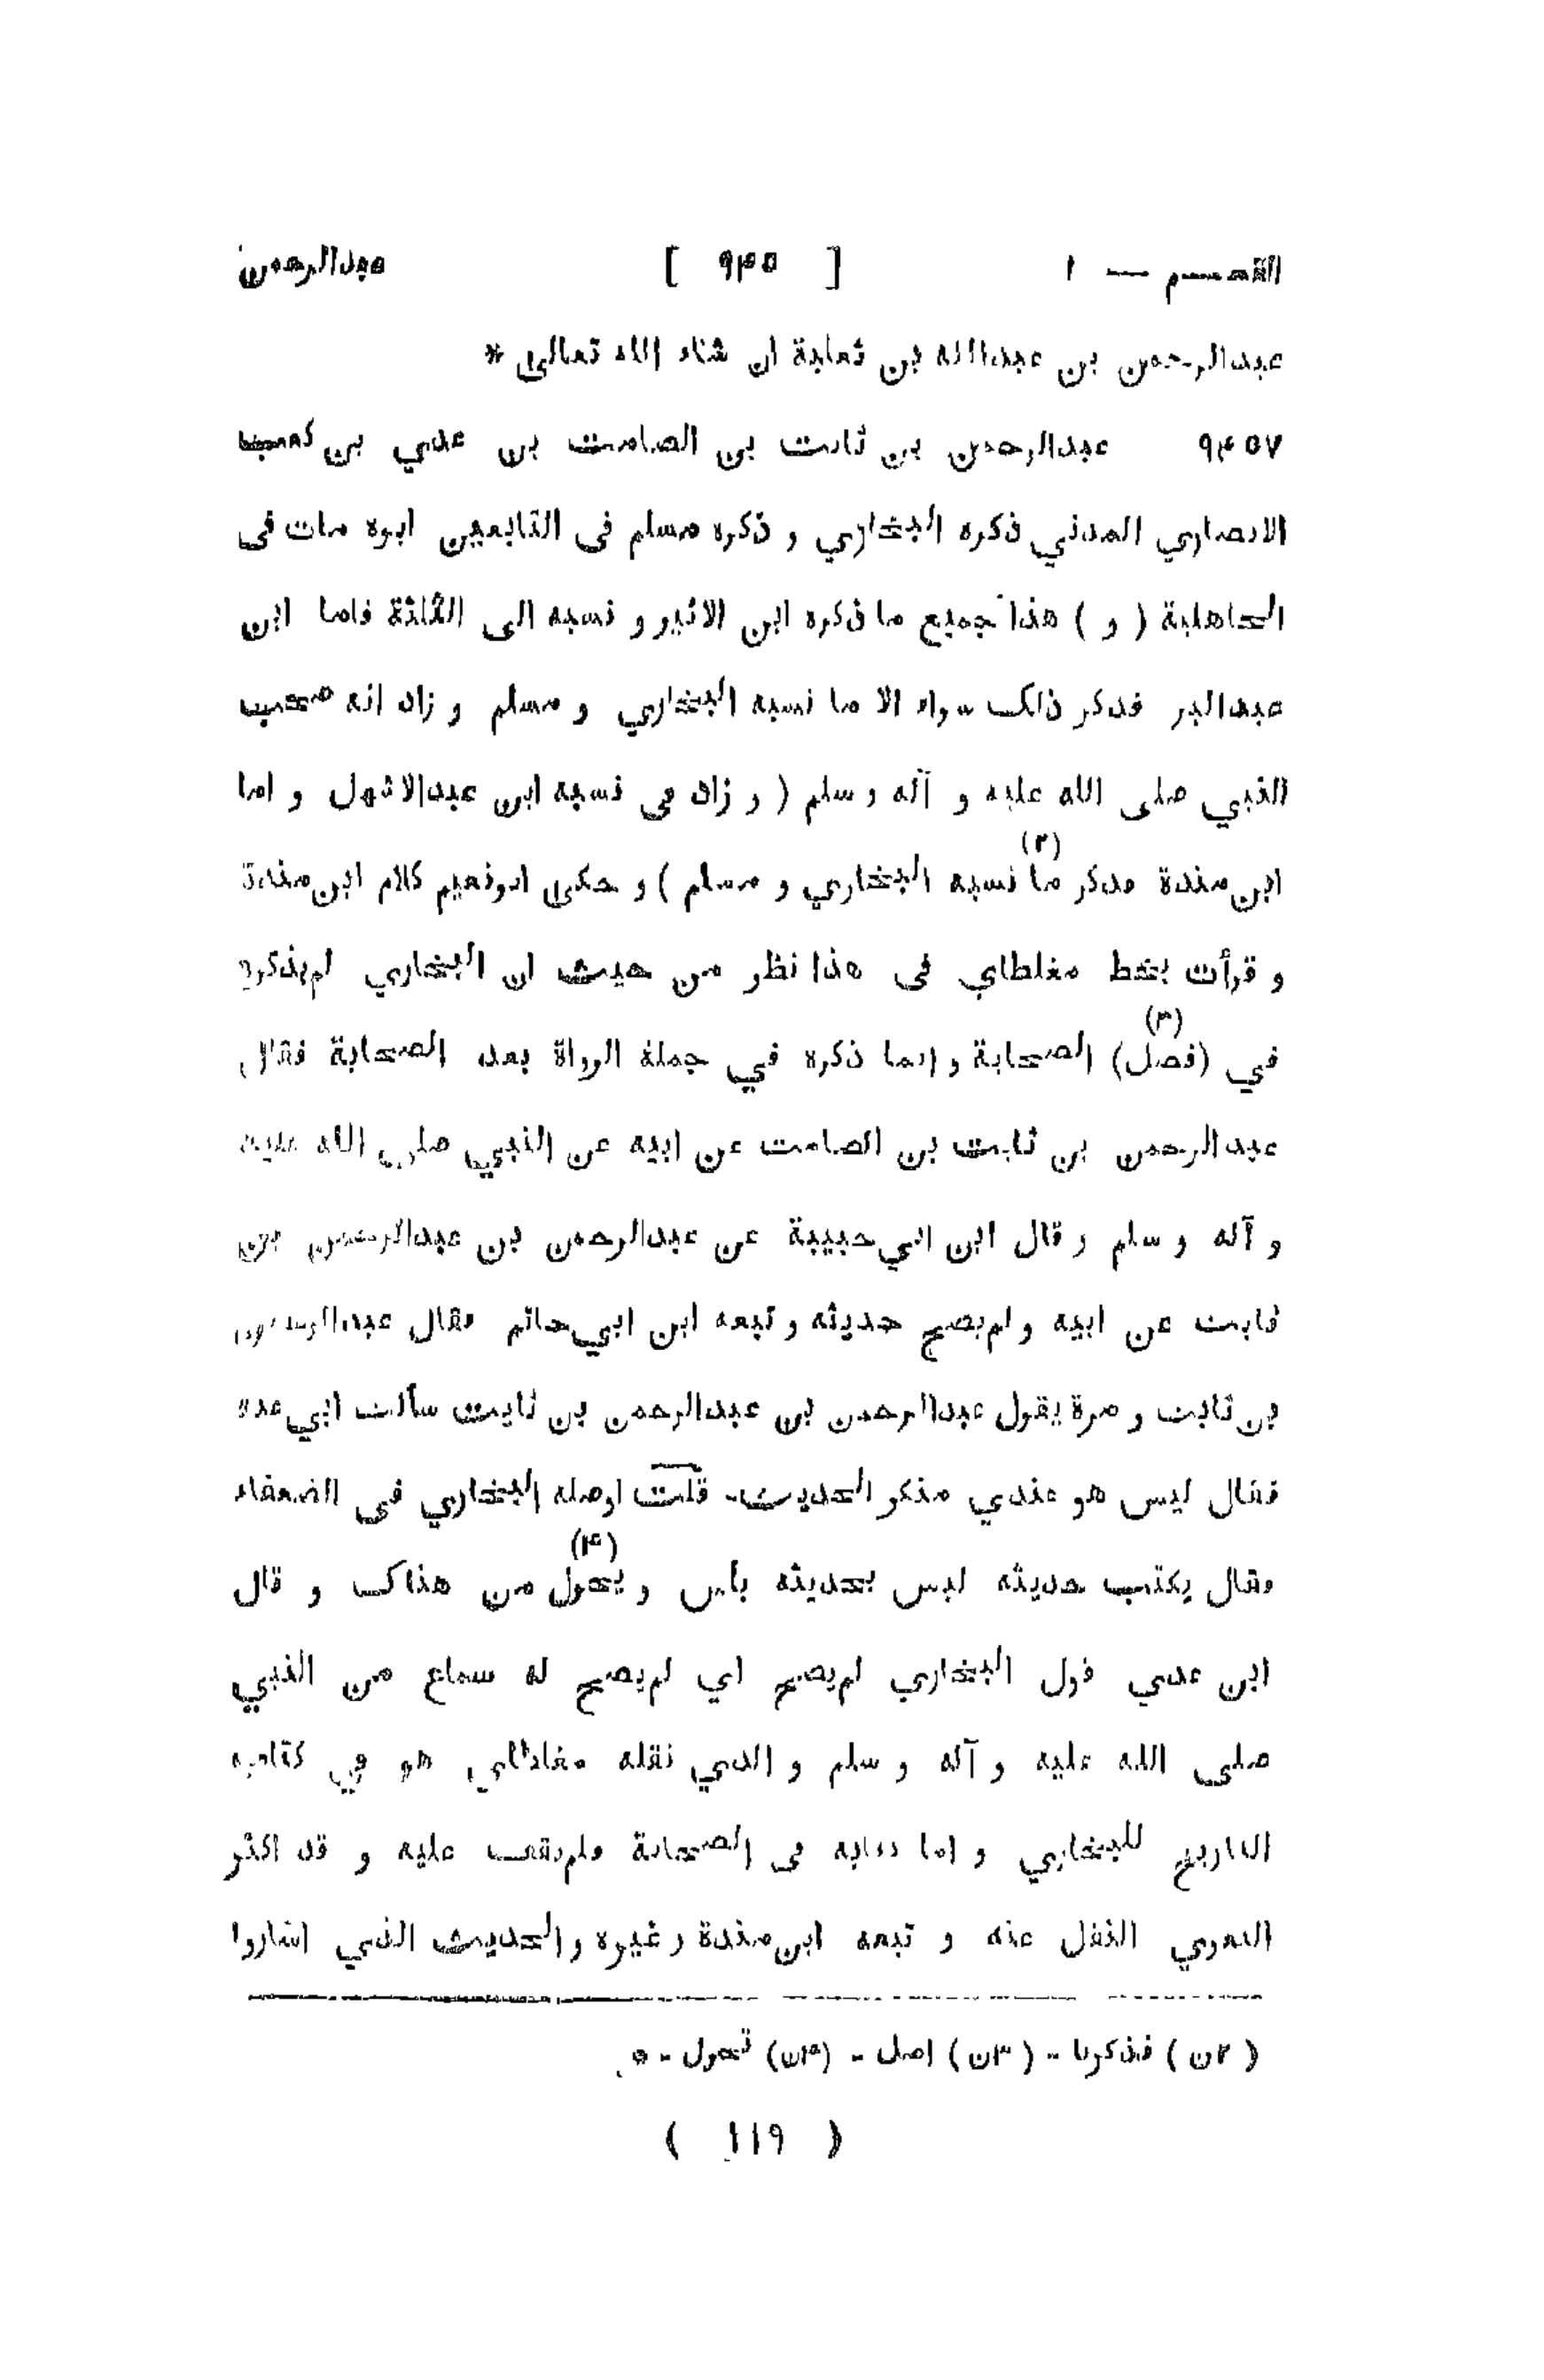 القسم — ١ [ ٩٤٥ ] عبدالرحمن
عبدالرحمن بن عبدالله بن ثعلبة ان شاء الله تعالى *
٩٤٥٧ عبدالرحمن بن ثابت بن الصامت بن عدي بن كعب
الانصاري المدني ذكره البخاري و ذكره مسلم فى التابعين ابوه مات فى
الجاهلية ( و ) هذا جميع ما ذكره ابن الاثير و نسبه الى الثلثة فاما ابن
عبدالبر فذكر ذلك سواء الا ما نسبه البخاري و مسلم و زاد انه صحب
النبي صلى الله عليه و آله و سلم ( و زاد في نسبه ابن عبدالاشهل و اما
ابن مندة فذكر ما (٢) نسبه البخاري و مسلم ) و حكى ابونعيم كلام ابن مندة
و قرأت بخط مغلطاي فى هذا نظر من حيث ان البخاري لم يذكره
في (فصل) (٣) الصحابة و انما ذكره في جملة الرواة بعد الصحابة فقال
عبدالرحمن بن ثابت بن الصامت عن ابيه عن النبي صلى الله عليه
و آله و سلم و قال ابن ابي حبيبة عن عبدالرحمن بن عبدالرحمن بن
ثابت عن ابيه و لم يصح حديثه و تبعه ابن ابي حاتم فقال عبدالرحمن
بن ثابت و مرة يقول عبدالرحمن بن عبدالرحمن بن ثابت سألت ابي عنه
فقال ليس هو عندي منكر الحديث - قلت اوصله البخاري فى الضعفاء
فقال يكتب حديثه ليس بحديثه بأس و يحول (٤) من هناك و قال
ابن عدي قول البخاري لم يصح اي لم يصح له سماع من النبي
صلى الله عليه و آله و سلم و الذي نقله مغلطاي هو في كتاب
التاريخ للبخاري و اما كتابه فى الصحابة فلم نقف عليه و قد اكثر
البغوي النقل عنه و تبعه ابن مندة و غيره و الحديث الذي اشاروا
( ٢ن ) فذكرنا - ( ٣ن ) اصل - (٤ن) تحول -
( ١١٩ )